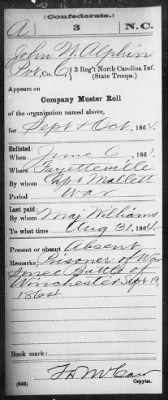 (Confederate.)
A 3 N.C.
John W. Alphin
Pvt, Co. C, 3 Reg't North Carolina Inf.
(State Troops.)
Appears on
Company Muster Roll
of the organization named above,
for Sept & Oct, 1864.
Enlisted:
When June 6, 1861.
Where Fayetteville
By whom Capt Mallett
Period War
Last paid:
By whom Maj Williams
To what time Aug 31, 1864.
Present or absent Absent
Remarks: Prisoner of War
since Battle of
Winchester Sept 19,
1864
Book mark:
(642) Copyist.